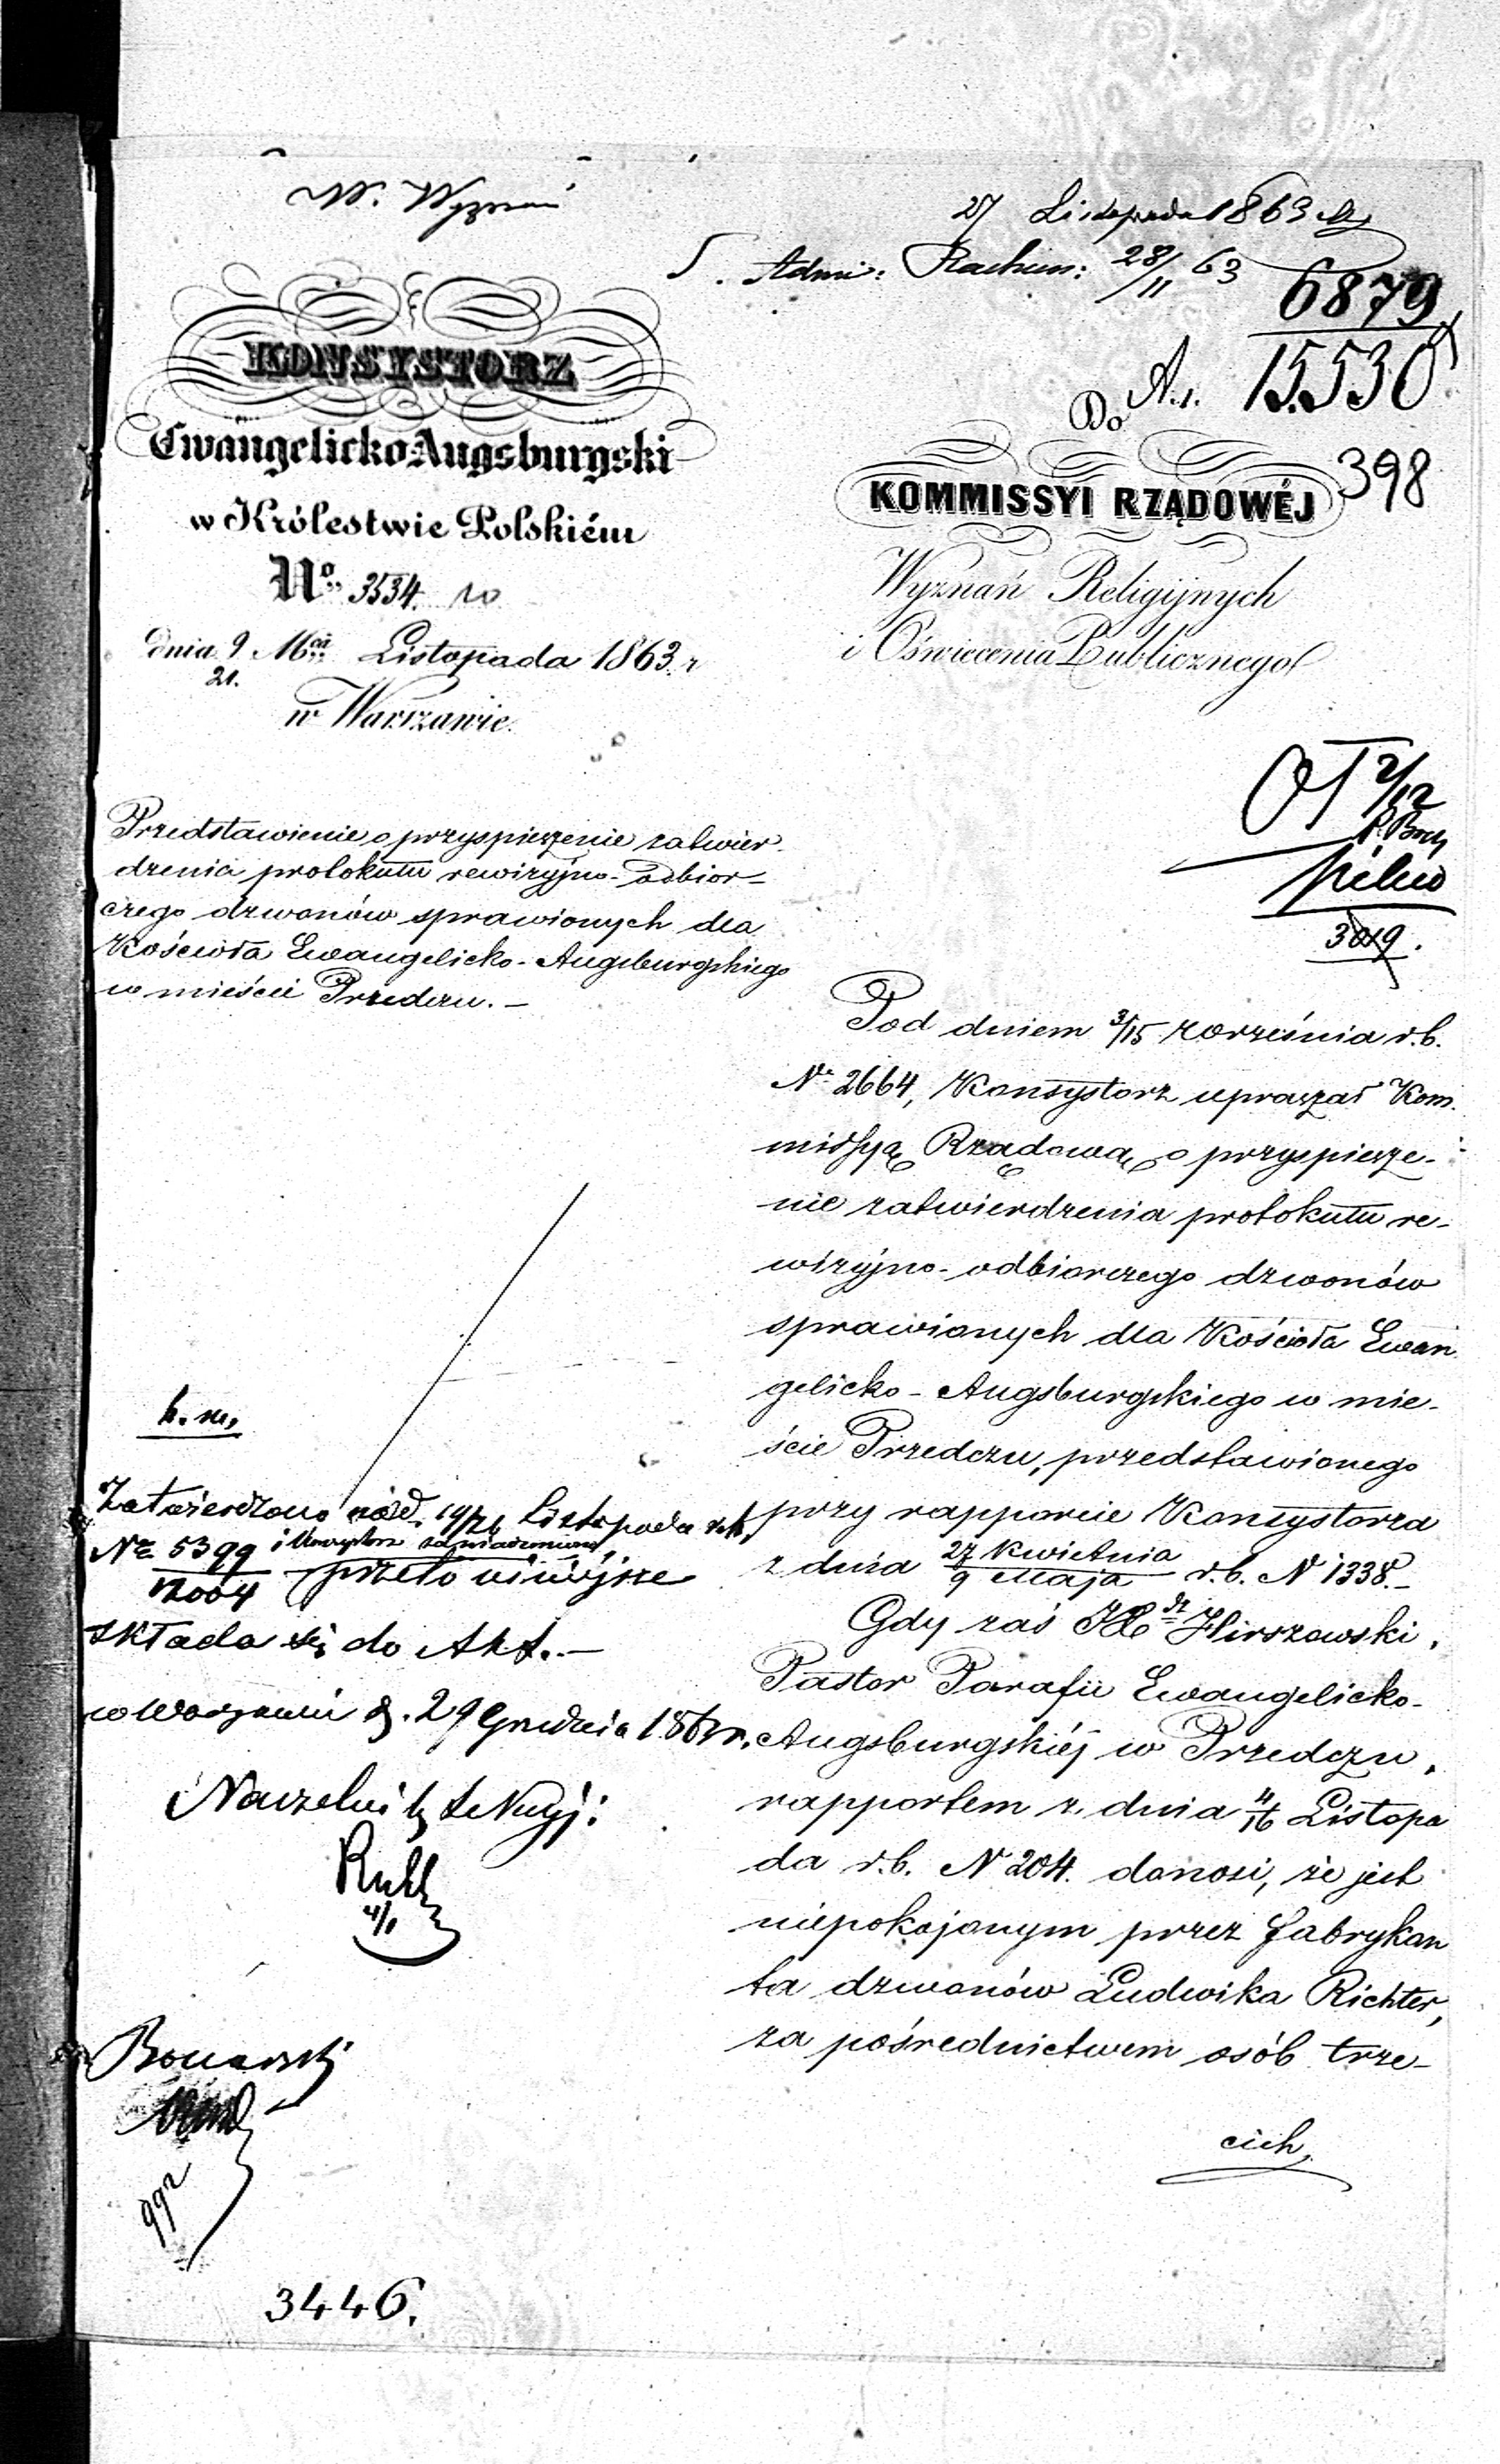 W. Wyznań
27 Listopada 1863
Admi: Rachun: 28/11 63
6879
15530
398
KONSYSTORZ
Ewangelicko Augsburgski
w Królestwie Polskiém
No. 3534.
dnia 9 Mca Listopada 1863 r
21.
w Warszawie.
Do
KOMMISSYI RZĄDOWÉJ
Wyznań Religijnych
i Oświecenia Publicznego
2/12
pilno
3019.
Przedstawienie o przyspieszenie zatwier-
dzenia protokułu rewizyjno-odbior-
czego dzwonów sprawionych dla
Kościoła Ewangelicko-Augsburgskiego
w mieście Przedczu.—
Pod dniem 3/15 września r.b.
No 2664, Konsystorz upraszał Kom-
missyą Rządową o przyspiesze-
nie zatwierdzenia protokułu re-
wizyjno-odbiorczego dzwonów
sprawionych dla Kościoła Ewan
gelicko-Augsburgskiego w mie-
ście Przedczu, przedstawionego
przy rapporcie Konsystorza
z dnia 27 Kwietnia / 9 Maja r.b. N 1338.—
Gdy zaś Xdz Hirszowski,
Pastor Parafii Ewangelicko-
Augsburgskiéj w Przedczu,
rapportem z dnia 4/16 Listopa
da r.b. N 204. donosi, że jest
niepokojonym przez fabrykan
ta dzwonów Ludwika Richter,
za pośrednictwem osób trze-
cich,
b. m.
Zatwierdzono pod d. Listopada r.b.
Nr 5399 i Konsystorz zawiadomiony,
12004 przeto niniejsze
składa się do Akt.—
w Warszawie d. 29 Grudnia 1863 r.
Naczelnik Sekcyi:
992
3446.